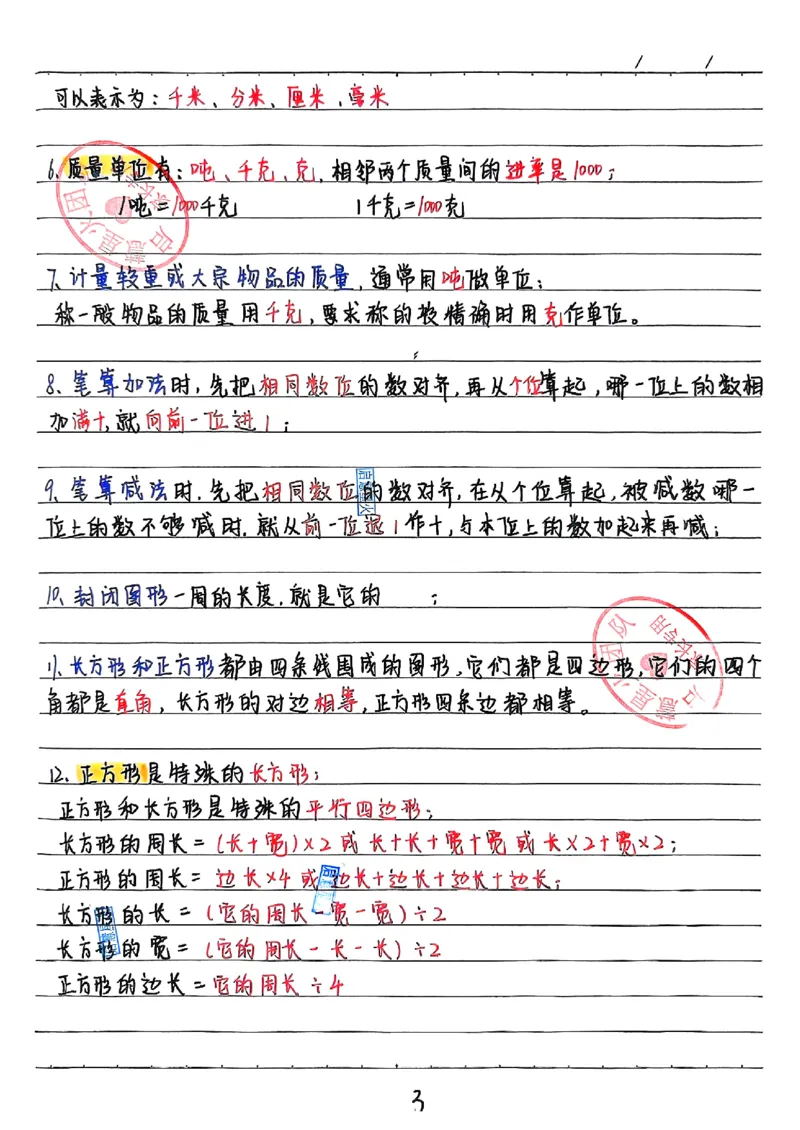 / /
可以表示为：千米、分米、厘米、毫米
6、质量单位有：吨、千克、克，相邻两个质量间的进率是1000；
1吨=1000千克 1千克=1000克
7、计量较重或大宗物品的质量，通常用吨做单位；
称一般物品的质量用千克，要求称的较精确时用克作单位。
8、笔算加法时，先把相同数位的数对齐，再从个位算起，哪一位上的数相
加满十，就向前一位进1；
9、笔算减法时，先把相同数位的数对齐，在从个位算起，被减数哪一
位上的数不够减时，就从前一位退1作十，与本位上的数加起来再减；
10、封闭图形一周的长度，就是它的 ；
11、长方形和正方形都由四条线围成的图形，它们都是四边形，它们的四个
角都是直角，长方形的对边相等，正方形四条边都相等。
12、正方形是特殊的长方形；
正方形和长方形是特殊的平行四边形；
长方形的周长=(长+宽)×2或 长+长+宽+宽 或 长×2+宽×2；
正方形的周长= 边长×4或 边长+边长+边长+边长；
长方形的长=(它的周长-宽-宽)÷2
长方形的宽=(它的周长-长-长)÷2
正方形的边长=它的周长÷4
3